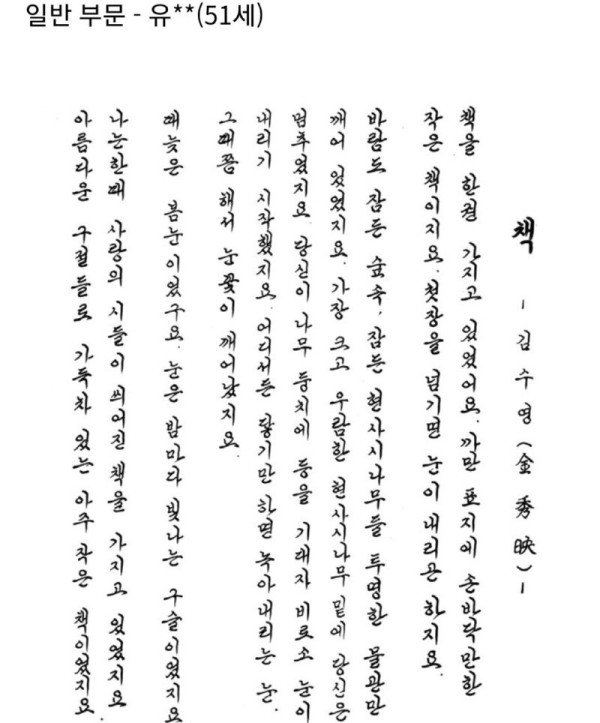 일반 부문 - 유**(51세)
책 - 김수영(金秀映) -
책을 한권 가지고 있었어요. 까만 표지에 손바닥만한
작은 책이지요. 첫장을 넘기면 눈이 내리곤 하지요.
바람도 잠든 숲속, 잠든 현사시나무들 투명한 물관만
깨어 있었지요. 가장 크고 우람한 현사시나무 밑에 당신은
멈추었지요. 당신이 나무 둥치에 등을 기대자 비로소 눈이
내리기 시작했지요. 어디서든 닿기만 하면 녹아내리는 눈.
그때쯤 해서 눈꽃이 깨어났지요.
때늦은 봄눈이었구요. 눈은 밤마다 빛나는 구슬이었지요
나는 한때 사랑의 시들이 씌어진 책을 가지고 있었지요
아름다운 구절들로 가득차 있는 아주 작은 책이었지요.